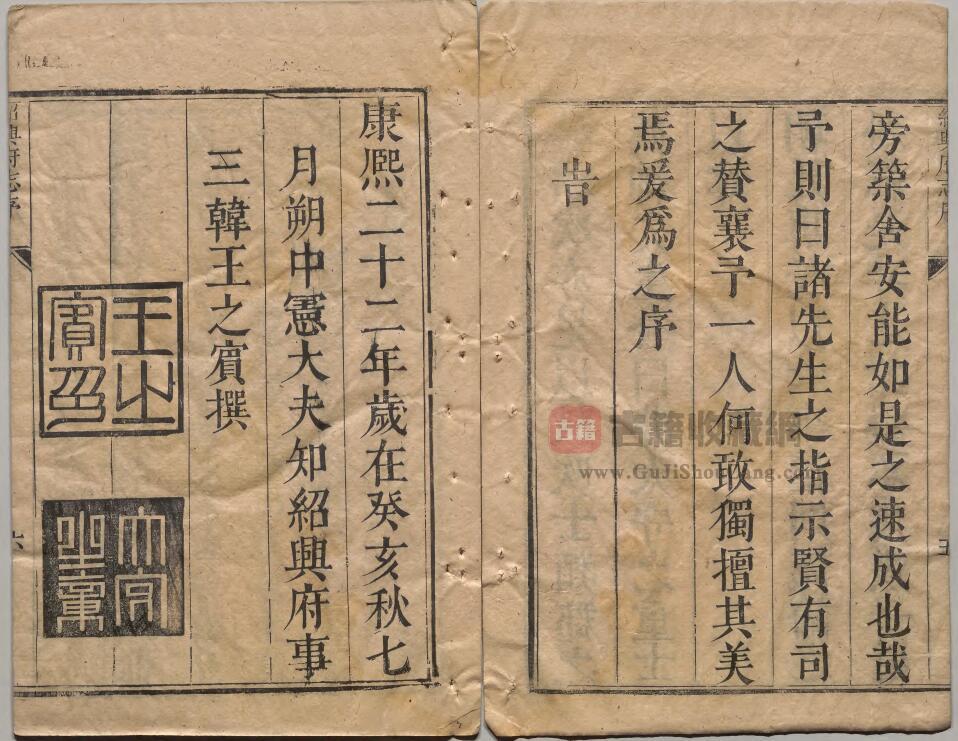 旁築舍安能如是之速成也哉
予則曰諸先生之指示賢有司
之賛襄予一人何敢獨擅其美
焉爰爲之序
旹
康熈二十二年歲在癸亥秋七
月朔中憲大夫知紹興府事
三韓王之賓撰
王之賓印
紹興府志序
六
五
古籍
古籍收藏網
www.GuJiShouCang.com